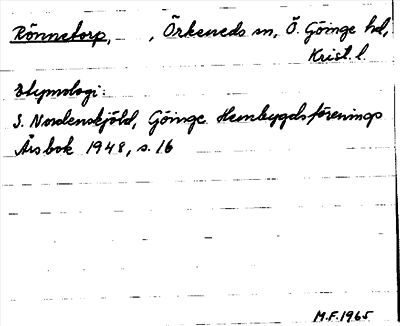 Rönnetorp, , Örkeneds sn, Ö. Göinge hd,
Krist. l.
Etymologi:
S. Nordenskjöld, Göinge Hembygdsförenings
Årsbok 1948, s. 16
M.F. 1965